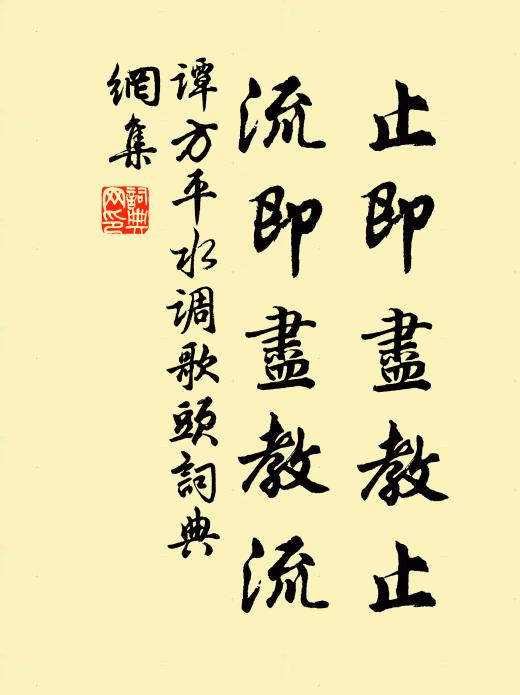 止即盡教止
流即盡教流
谭方平水调歌頭詞典
網集
詞典
网印